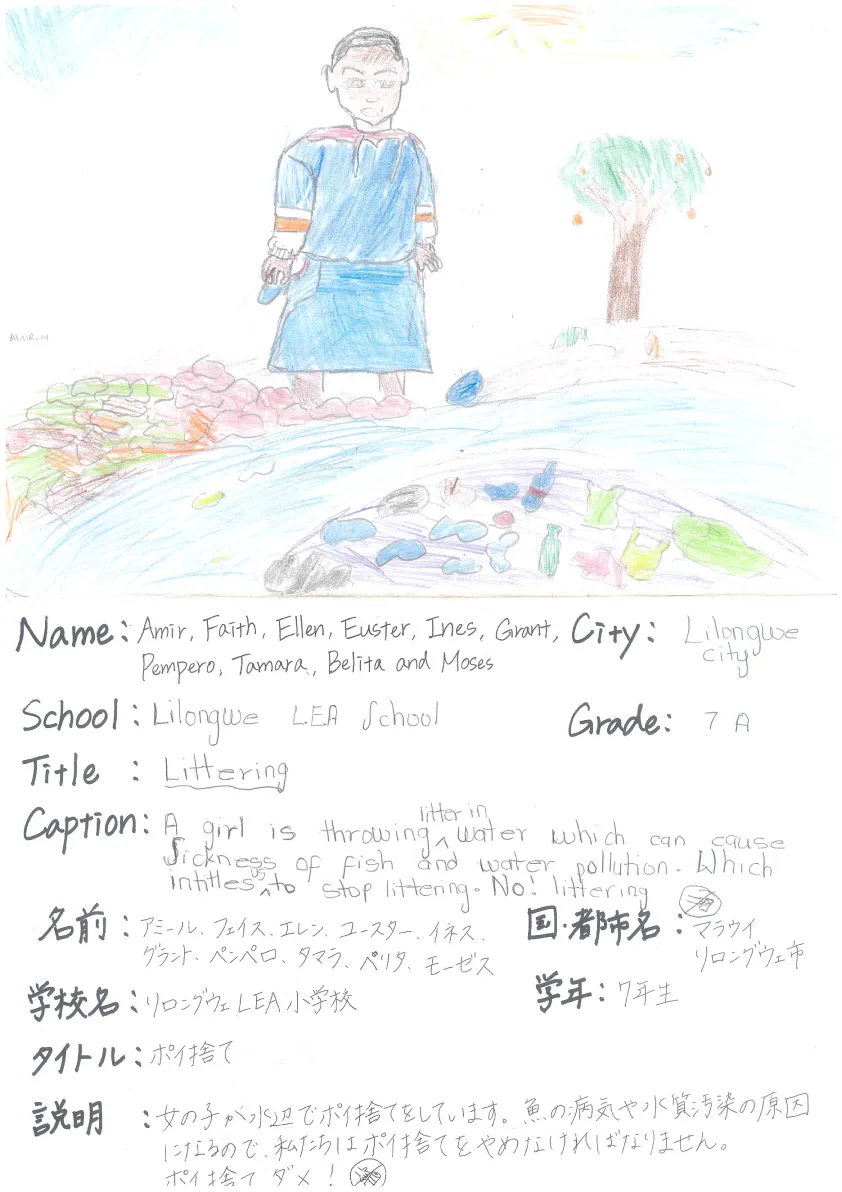 AMIR.M
Name: Amir, Faith, Ellen, Euster, Ines, Grant,
Pempero, Tamara, Belita and Moses
City: Lilongwe
city
School: Lilongwe LEA School
Grade: 7 A
Title : Littering
Caption: A girl is throwing litter in water which can cause
Sickness of fish and water pollution. Which
intitles us to stop littering. No! littering
名前 : アミール、フェイス、エレン、ユースター、イネス、
グラント、ペンペロ、タマラ、ベリタ、モーゼス
国・都市名 : マラウイ
リロングウェ市
学校名 : リロングウェLEA小学校
学年 : 7年生
タイトル : ポイ捨て
説明 : 女の子が水辺でポイ捨てをしています。魚の病気や水質汚染の原因
になるので、私たちはポイ捨てをやめなければなりません。
ポイ捨て ダメ!